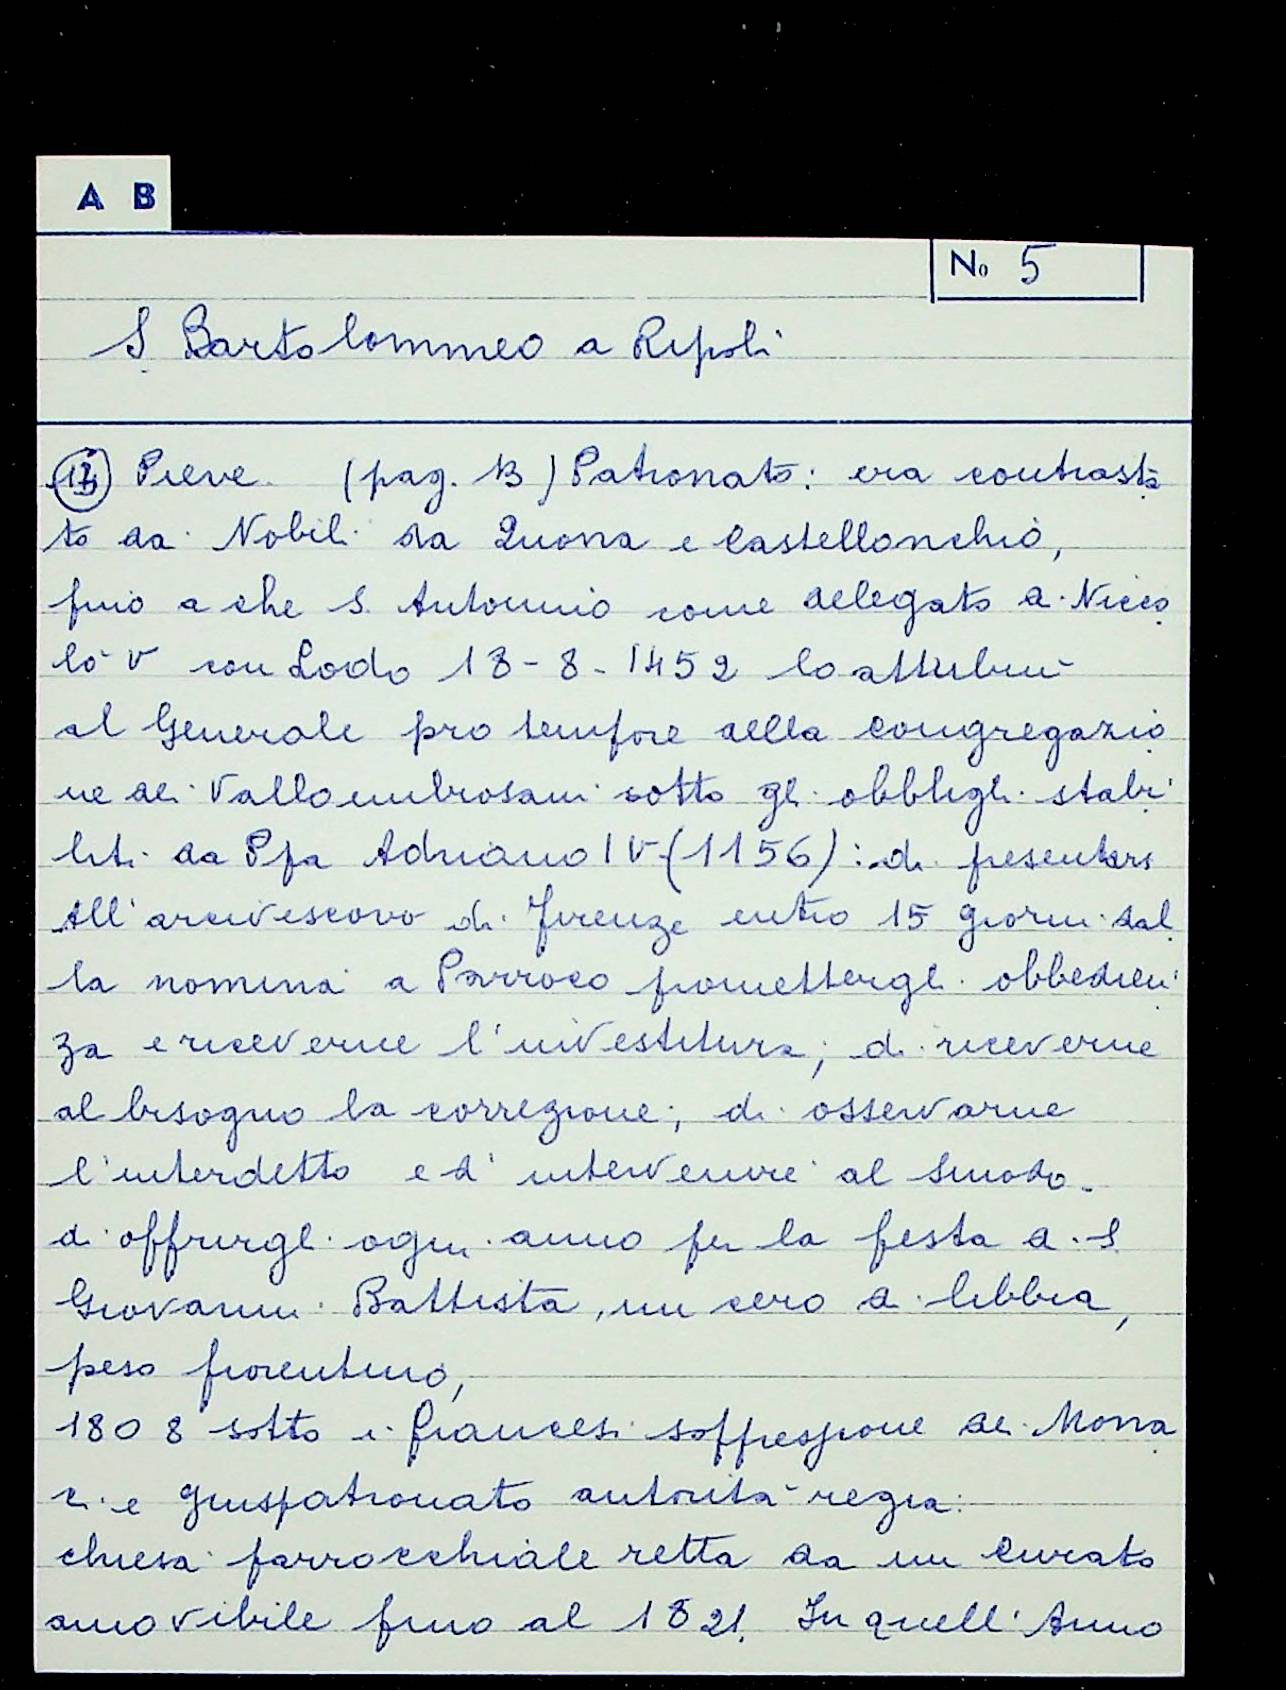 A B
No 5
S Bartolommeo a Ripoli
Pieve (pag. 13) Patronato: era contrasta
to da Nobili da Quona e Castellonchio,
fino a che S. Antonino come delegato di Nicco
lò V con Lodo 18-8-1452 lo attribuì
al Generale pro tempore della congregazio
ne dei Vallombrosani sotto gli obblighi stabi
liti da Ppa Adriano IV (1156): di presentars
all'arcivescovo di Firenze entro 15 giorni dal
la nomina a Parroco promettergli obbedien
za e riceverne l'investitura; di riceverne
al bisogno la correzione; di osservarne
l'interdetto e d'intervenire al Sinodo.
di offrirgli ogni anno per la festa di S.
Giovanni Battista, un cero di libbra,
peso fiorentino,
1808 sotto i francesi soppressione dei Mona
ci e giuspatronato autorità regia:
chiesa parrocchiale retta da un Curato
amovibile fino al 1821. In quell'Anno